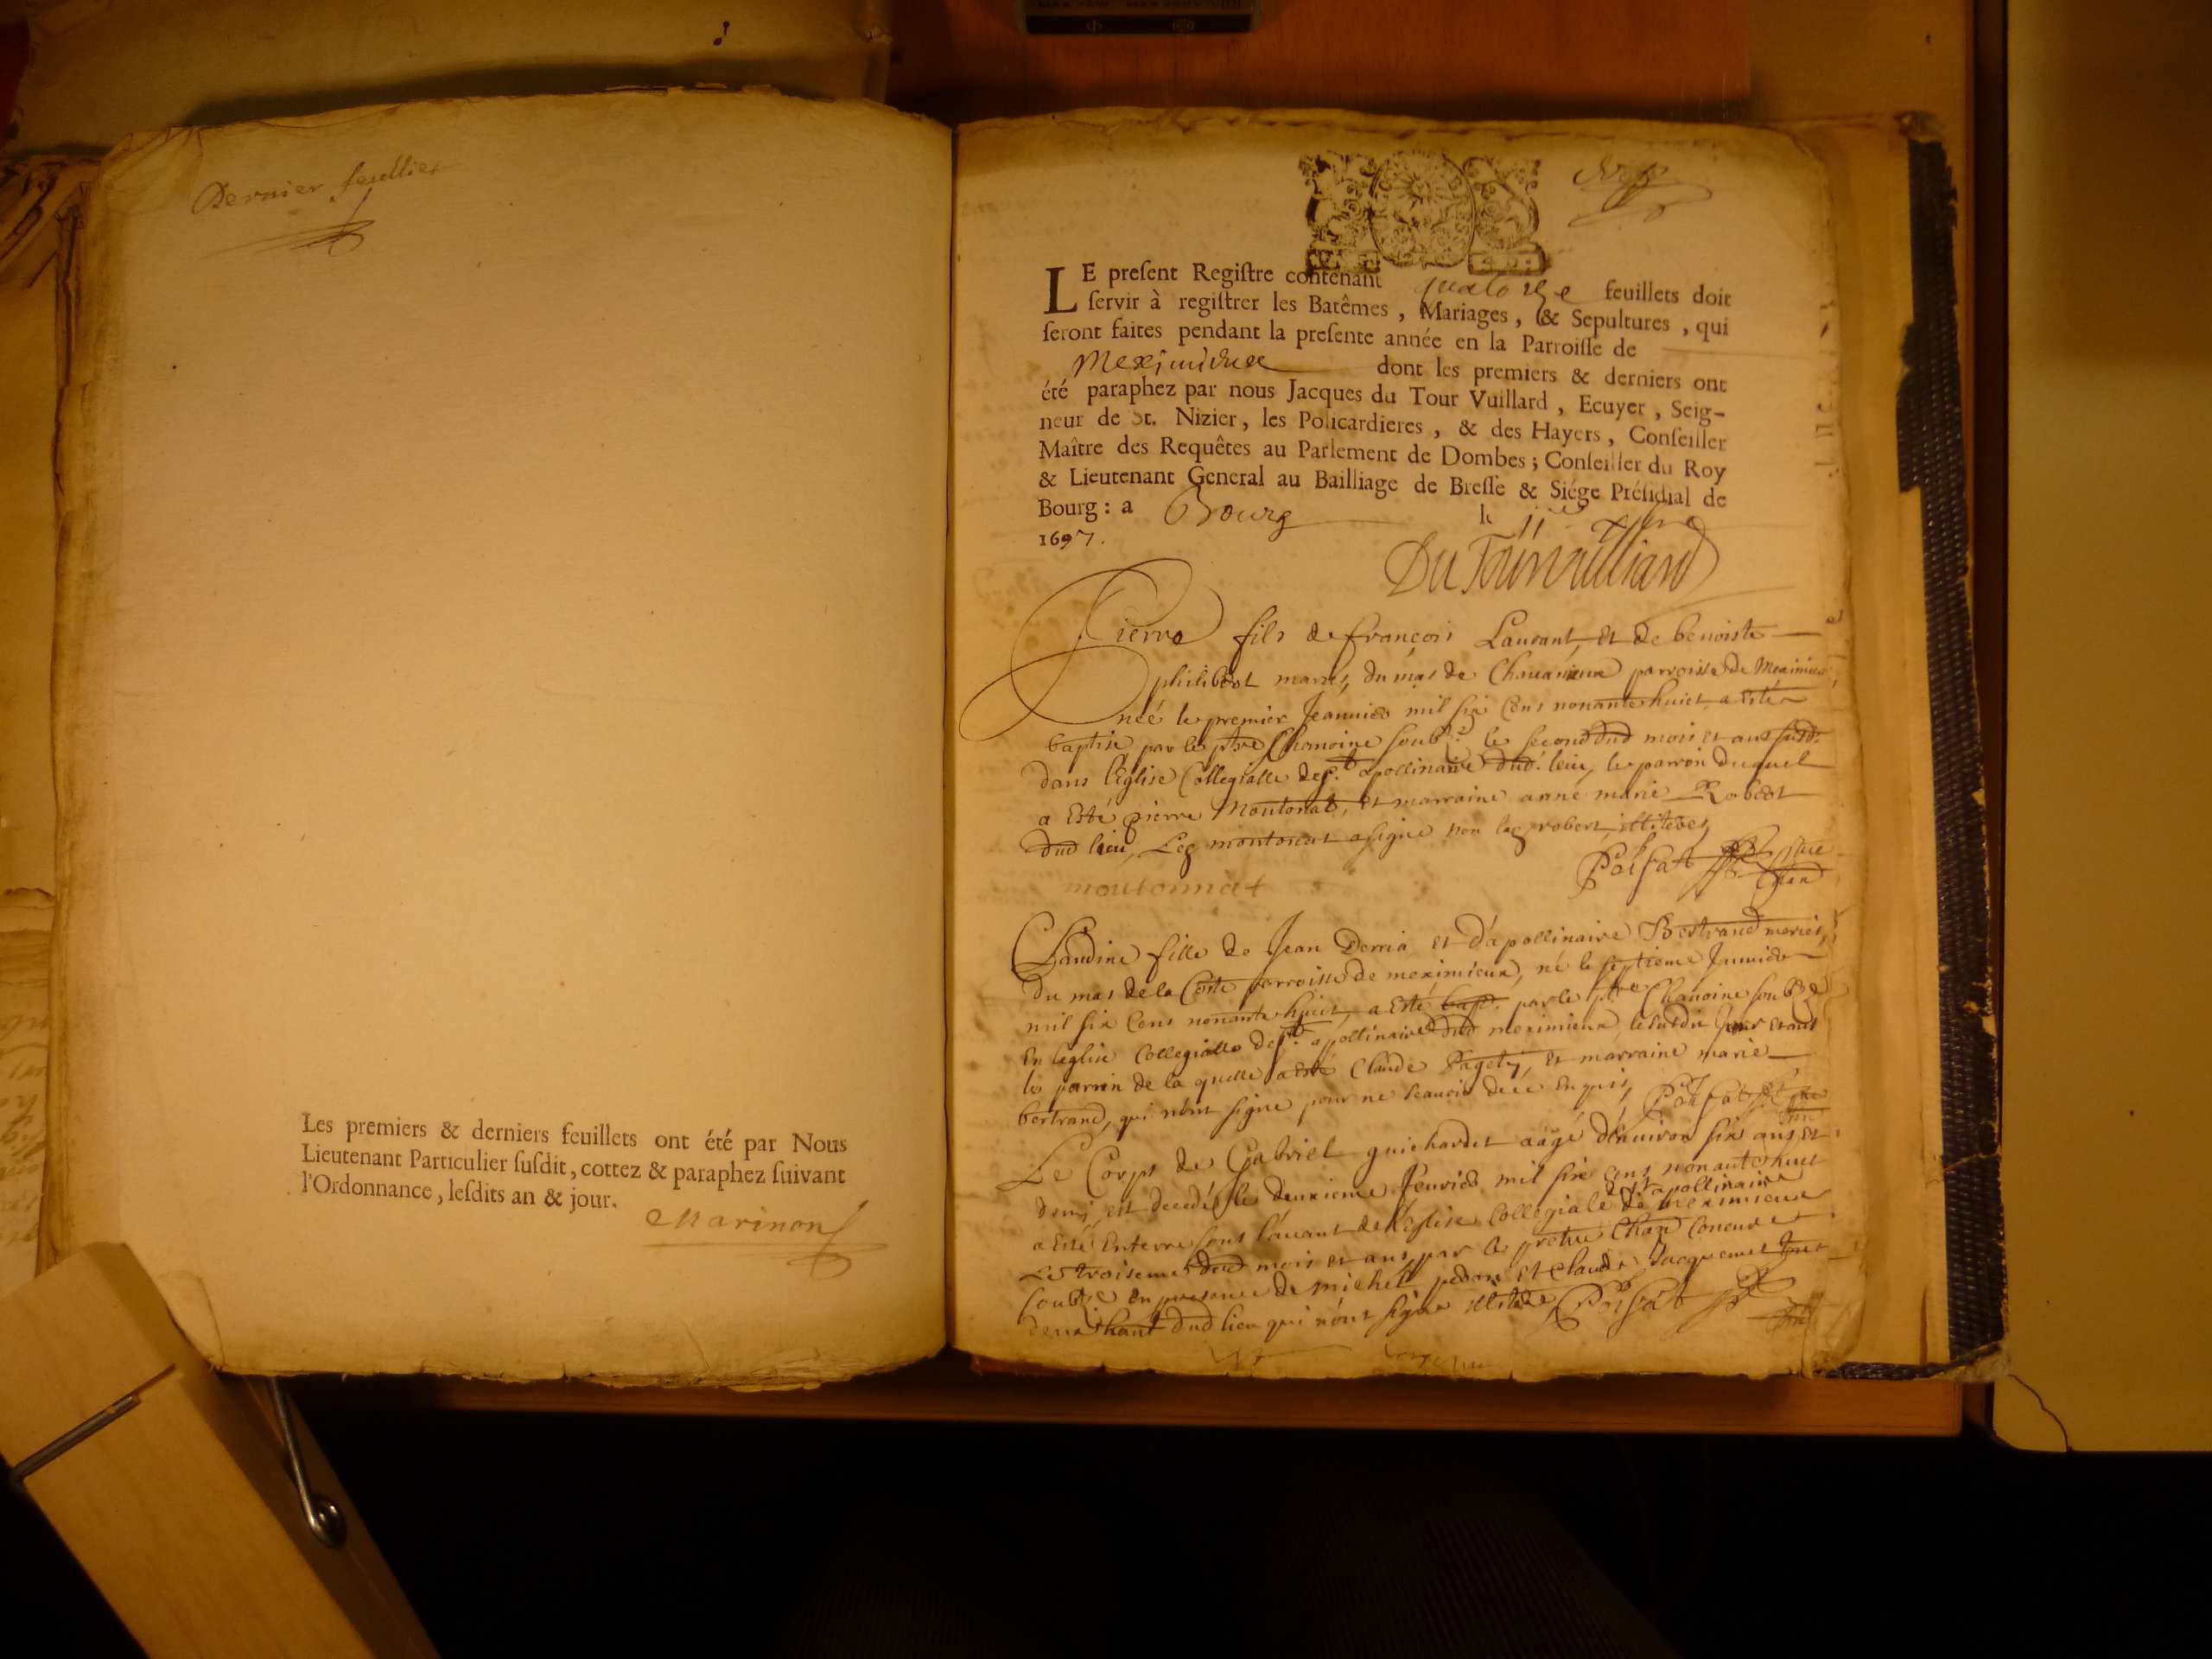 Dernier feuillet
Les premiers & derniers feuillets ont été par Nous
Lieutenant Particulier ſuſdit, cottez & paraphez ſuivant
l'Ordonnance, leſdits an & jour.
Marinon
LE preſent Regiſtre contenant quatorze feuillets doit
ſervir à regiſtrer les Batêmes, Mariages, & Sepultures, qui
ſeront faites pendant la preſente année en la Parroiſſe de
Meximieux dont les premiers & derniers ont
été paraphez par nous Jacques du Tour Vuillard, Ecuyer, Seig-
neur de St. Nizier, les Policardieres, & des Hayers, Conſeiller
Maître des Requêtes au Parlement de Dombes; Conſeiller du Roy
& Lieutenant General au Bailliage de Breſſe & Siége Préſidial de
Bourg: a Bourg le 11
1697.
Du Tour Vuilliard
Pierre fils de françois Laurant et de benoiste
philibert mariés, du mas de parroisse de Meximieux
née le premier Jeanvier mil six Cens nonante huict, a esté
baptisé par le ptre Chanoine soubs.é le second dud mois et an susd.
dans l'Eglise Collegialle de st. apollinaire dud. lieu, le parroin duquel
a Esté pierre Moutonat, et marraine anne marie Robert
dud lieu, Leq moutonat a signé non laq robert, illiteres
Poisat ptre
moutonnat
Claudine fille de Jean Derria et d'apollinaire Bertrand mariés,
du mas de la Coste parroisse de meximieux, né le septieme Janvier
mil six Cens nonante huict, a Esté bapt. par le ptre Chanoine soubs.é
En leglise Collegialle de st. apollinaire dud meximieux le susdit Jour et an
le parrin de la quelle a esté Claude Paget, et marraine marie
bertrand, qui n'ont signé pour ne scavoir de ce enquis, Poisat ptre
Le Corps de Gabriel guichardet aagé d'environ six ans et
demi, est decedé le deuxieme Jenvier mil six cens nonante huict
a Esté Enterré sous l'auvant de l'Eglise Collegiale de st apollinaire de meximieux
Le troisieme dud mois et an, par le pretre Chan
soubs.é En presence de michel et Claude Jacquemet
dud lieu qui n'ont signé illiteres Poisat